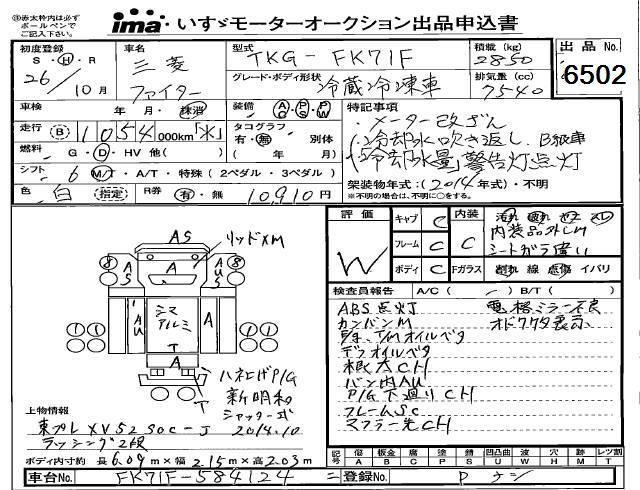 ※赤太枠内は必ずボールペンでご記入下さい。
ima いすゞモーターオークション出品申込書
初度登録 S・H・R 26/10月
車名 三菱 ファイター
型式 TKG-FK71F
積載(kg) 2850
出品No. 6502
グレード・ボディ形状 冷蔵冷凍車
排気量(cc) 7540
車検 年・月・抹消
装備 AC PS PW
特記事項
走行 B 1054 000km
タコグラフ 有・無 別体
・メーター改ざん
・冷却水吹き返し B級車
燃料 G・D・HV 他( )
・冷却水量警告灯点灯
シフト 6 M/T・A/T・特殊(2ペダル・3ペダル)
架装物年式:(2014年式)・不明
※不明の場合は、不明に○をする。
色 白 (指定) R券 有・無 10,910円
評価 W
キャブ C 内装 C
フレーム C
ボディ C Fガラス
内装品外しM
割れ 線 点傷 イバリ
AS リッドXM
8 8
A
シマアルミ
T
ハネ上げP/G
新明和
シャッター式
2014.10
検査員報告 A/C( ) B/T( )
ABS点灯 電格ミラー不良
カンバンM オドワクタ表示
T/Mオイルベタ
デフオイルベタ
根太CH
バン内AU
P/G下廻りCH
フレームSC
マフラー先CH
上物情報
東プレ XV52SOC-J
ラッシング2段
ボディ内寸約 長6.09m×幅2.15m×高2.03m
記号 傷A 凹B 板C 腐C 塗P 傷S 凹凸曲U 波W 穴H 跡M 跡T レンズ割T
車台No. FK71F-584124
登録No. P ケシ